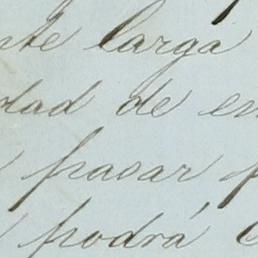 nte larga
dad de en
pasar p
podrá